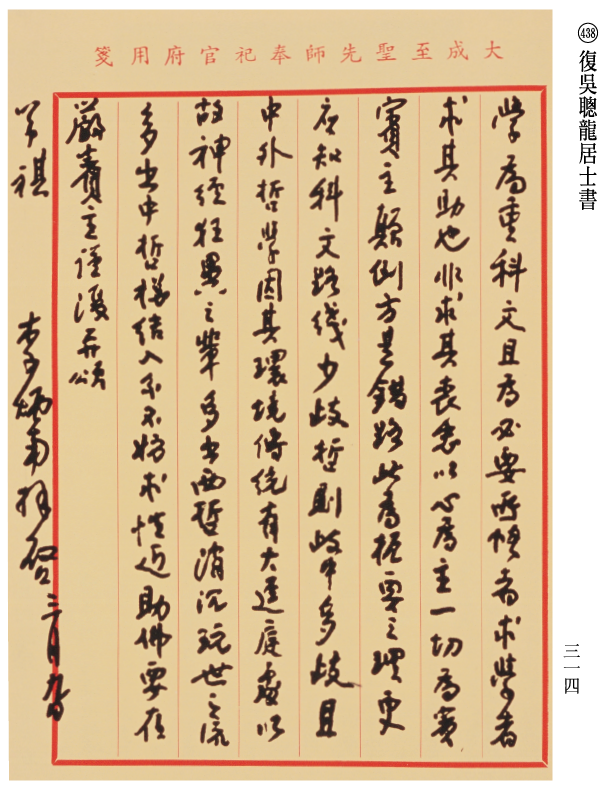 ㊳ 復吳聰龍居士書
大成至聖先師奉祀官府用箋
學為重科文且為必要所懼者求學者
求其助也非求其喪志以心為主一切為賓
賓主顛倒方是錯路此為極要之理更
應知科文路綫少歧哲則歧中多歧且
中外哲學因其環境傳統有大逕庭處以
故神經狂異之輩多出西哲消沉玩世之流
多出中哲總結入系不妨求性近助佛要在
嚴賓主謹復并頌
學祺
李炳南拜啟 三月日
三一四